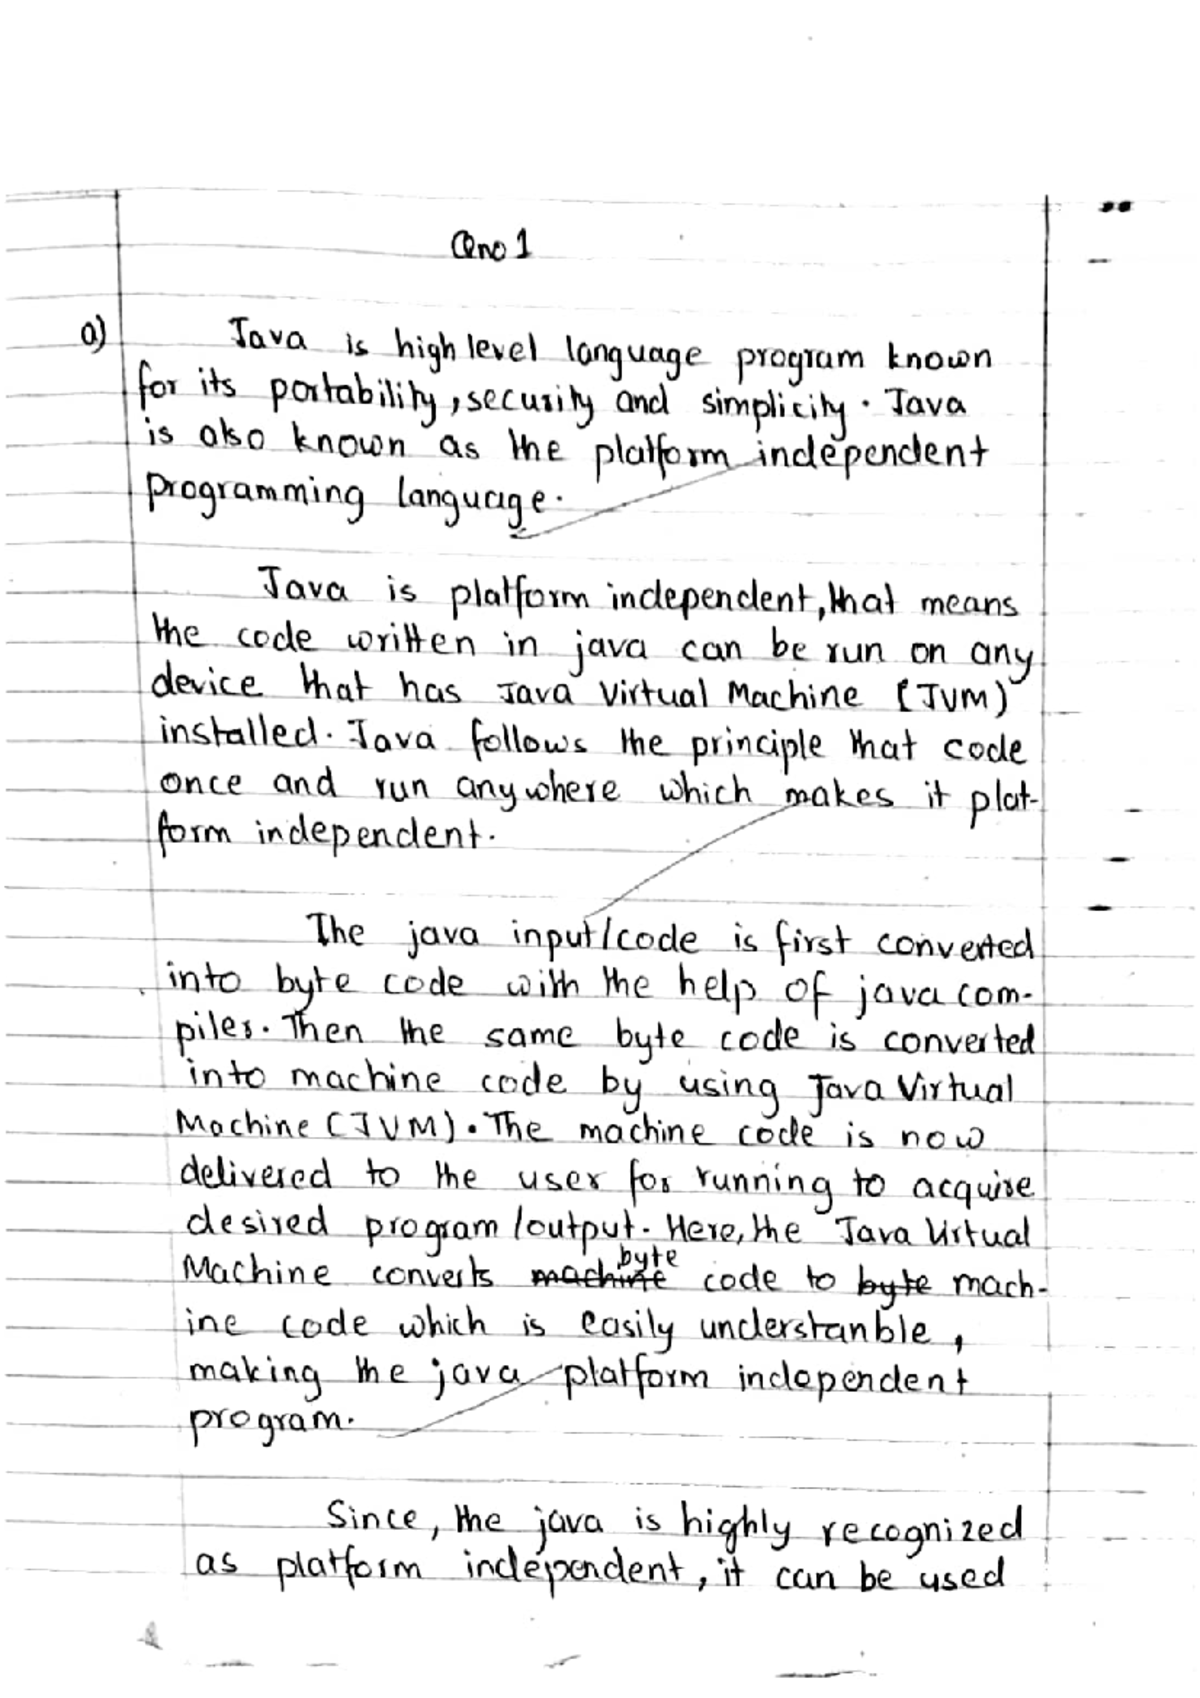 Qno 1
a) Java is high level language program known
for its portability, security and simplicity. Java
is also known as the platform independent
programming language.
Java is platform independent, that means
the code written in java can be run on any
device that has Java Virtual Machine (JVM)
installed. Java follows the principle that code
once and run anywhere which makes it plat-
form independent.
The java input/code is first converted
into byte code with the help of java com-
piler. Then the same byte code is converted
into machine code by using Java Virtual
Machine (JVM). The machine code is now
delivered to the user for running to acquire
desired program/output. Here, the Java Virtual
byte
Machine converts machine code to byte mach-
ine code which is easily understanble,
making the java platform independent
program.
Since, the java is highly recognized
as platform independent, it can be used